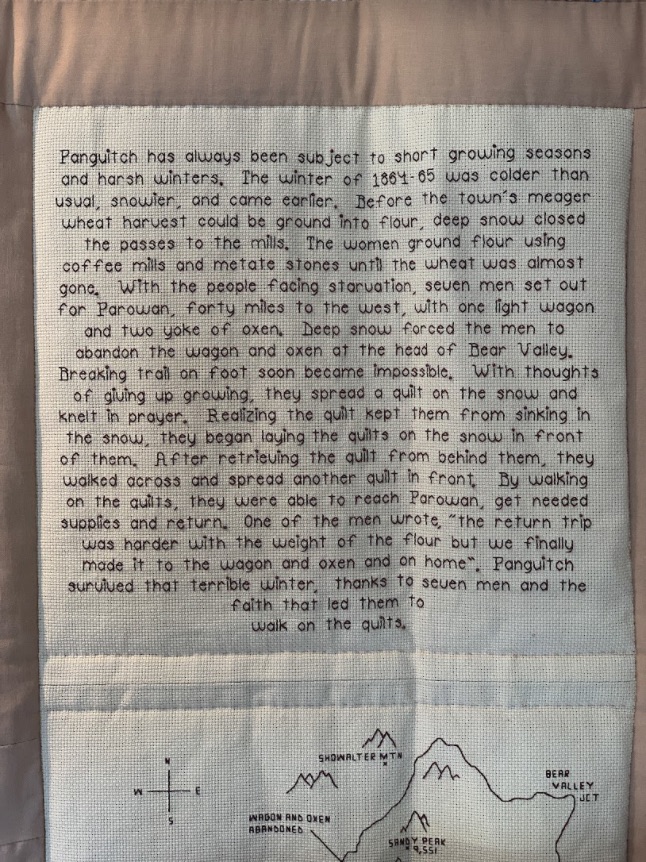 Panguitch has always been subject to short growing seasons
and harsh winters. The winter of 1864-65 was colder than
usual, snowier, and came earlier. Before the town's meager
wheat harvest could be ground into flour, deep snow closed
the passes to the mills. The women ground flour using
coffee mills and metate stones until the wheat was almost
gone. With the people facing starvation, seven men set out
for Parowan, forty miles to the west, with one light wagon
and two yoke of oxen. Deep snow forced the men to
abandon the wagon and oxen at the head of Bear Valley.
Breaking trail on foot soon became impossible. With thoughts
of giving up growing, they spread a quilt on the snow and
knelt in prayer. Realizing the quilt kept them from sinking in
the snow, they began laying the quilts on the snow in front
of them. After retrieving the quilt from behind them, they
walked across and spread another quilt in front. By walking
on the quilts, they were able to reach Parowan, get needed
supplies and return. One of the men wrote, "the return trip
was harder with the weight of the flour but we finally
made it to the wagon and oxen and on home". Panguitch
survived that terrible winter, thanks to seven men and the
faith that led them to
walk on the quilts.
SHOWALTER MTN
N
W E
S
BEAR
VALLEY
JCT
WAGON AND OXEN
ABANDONED
SANDY PEAK
9,551